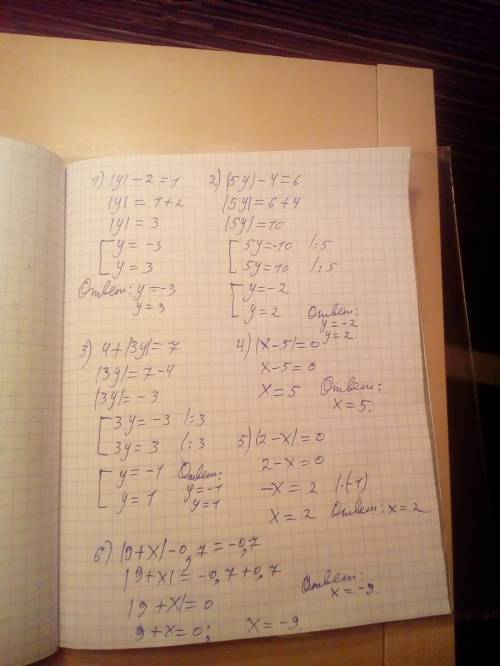 1) |y| - 2 = 1
|y| = 1 + 2
|y| = 3
y = -3
y = 3
Ответ: y = -3
y = 3
2) |5y| - 4 = 6
|5y| = 6 + 4
|5y| = 10
5y = -10 |:5
5y = 10 |:5
y = -2
y = 2
Ответ:
y = -2
y = 2
3) 4 + |3y| = 7
|3y| = 7 - 4
|3y| = -3
3y = -3 |:3
3y = 3 |:3
y = -1
y = 1
Ответ:
y = -1
y = 1
4) |x - 5| = 0
x - 5 = 0
x = 5
Ответ:
x = 5.
5) |2 - x| = 0
2 - x = 0
-x = 2 |·(-1)
x = 2 Ответ: x = 2
6) |9 + x| - 0,7 = -0,7
|9 + x| = -0,7 + 0,7
|9 + x| = 0
9 + x = 0; x = -9.
Ответ:
x = -9.